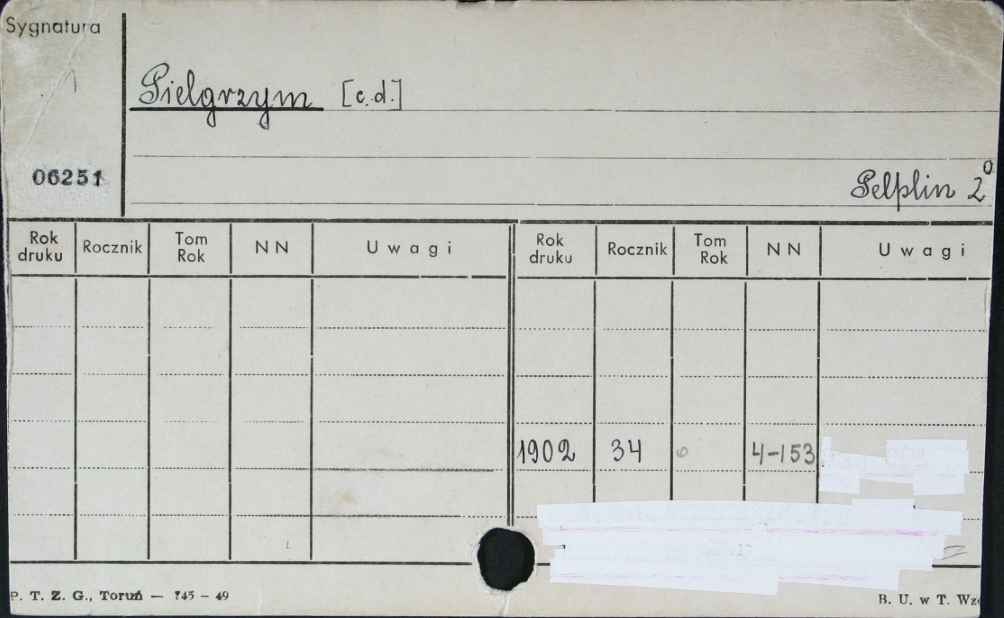 Sygnatura
Pielgrzym [c.d.]
06251
Pelplin 2⁰
Rok druku Rocznik Tom Rok NN Uwagi Rok druku Rocznik Tom Rok NN Uwagi
1902 34 4-153
P. T. Z. G., Toruń — 745 - 49
B. U. w T.